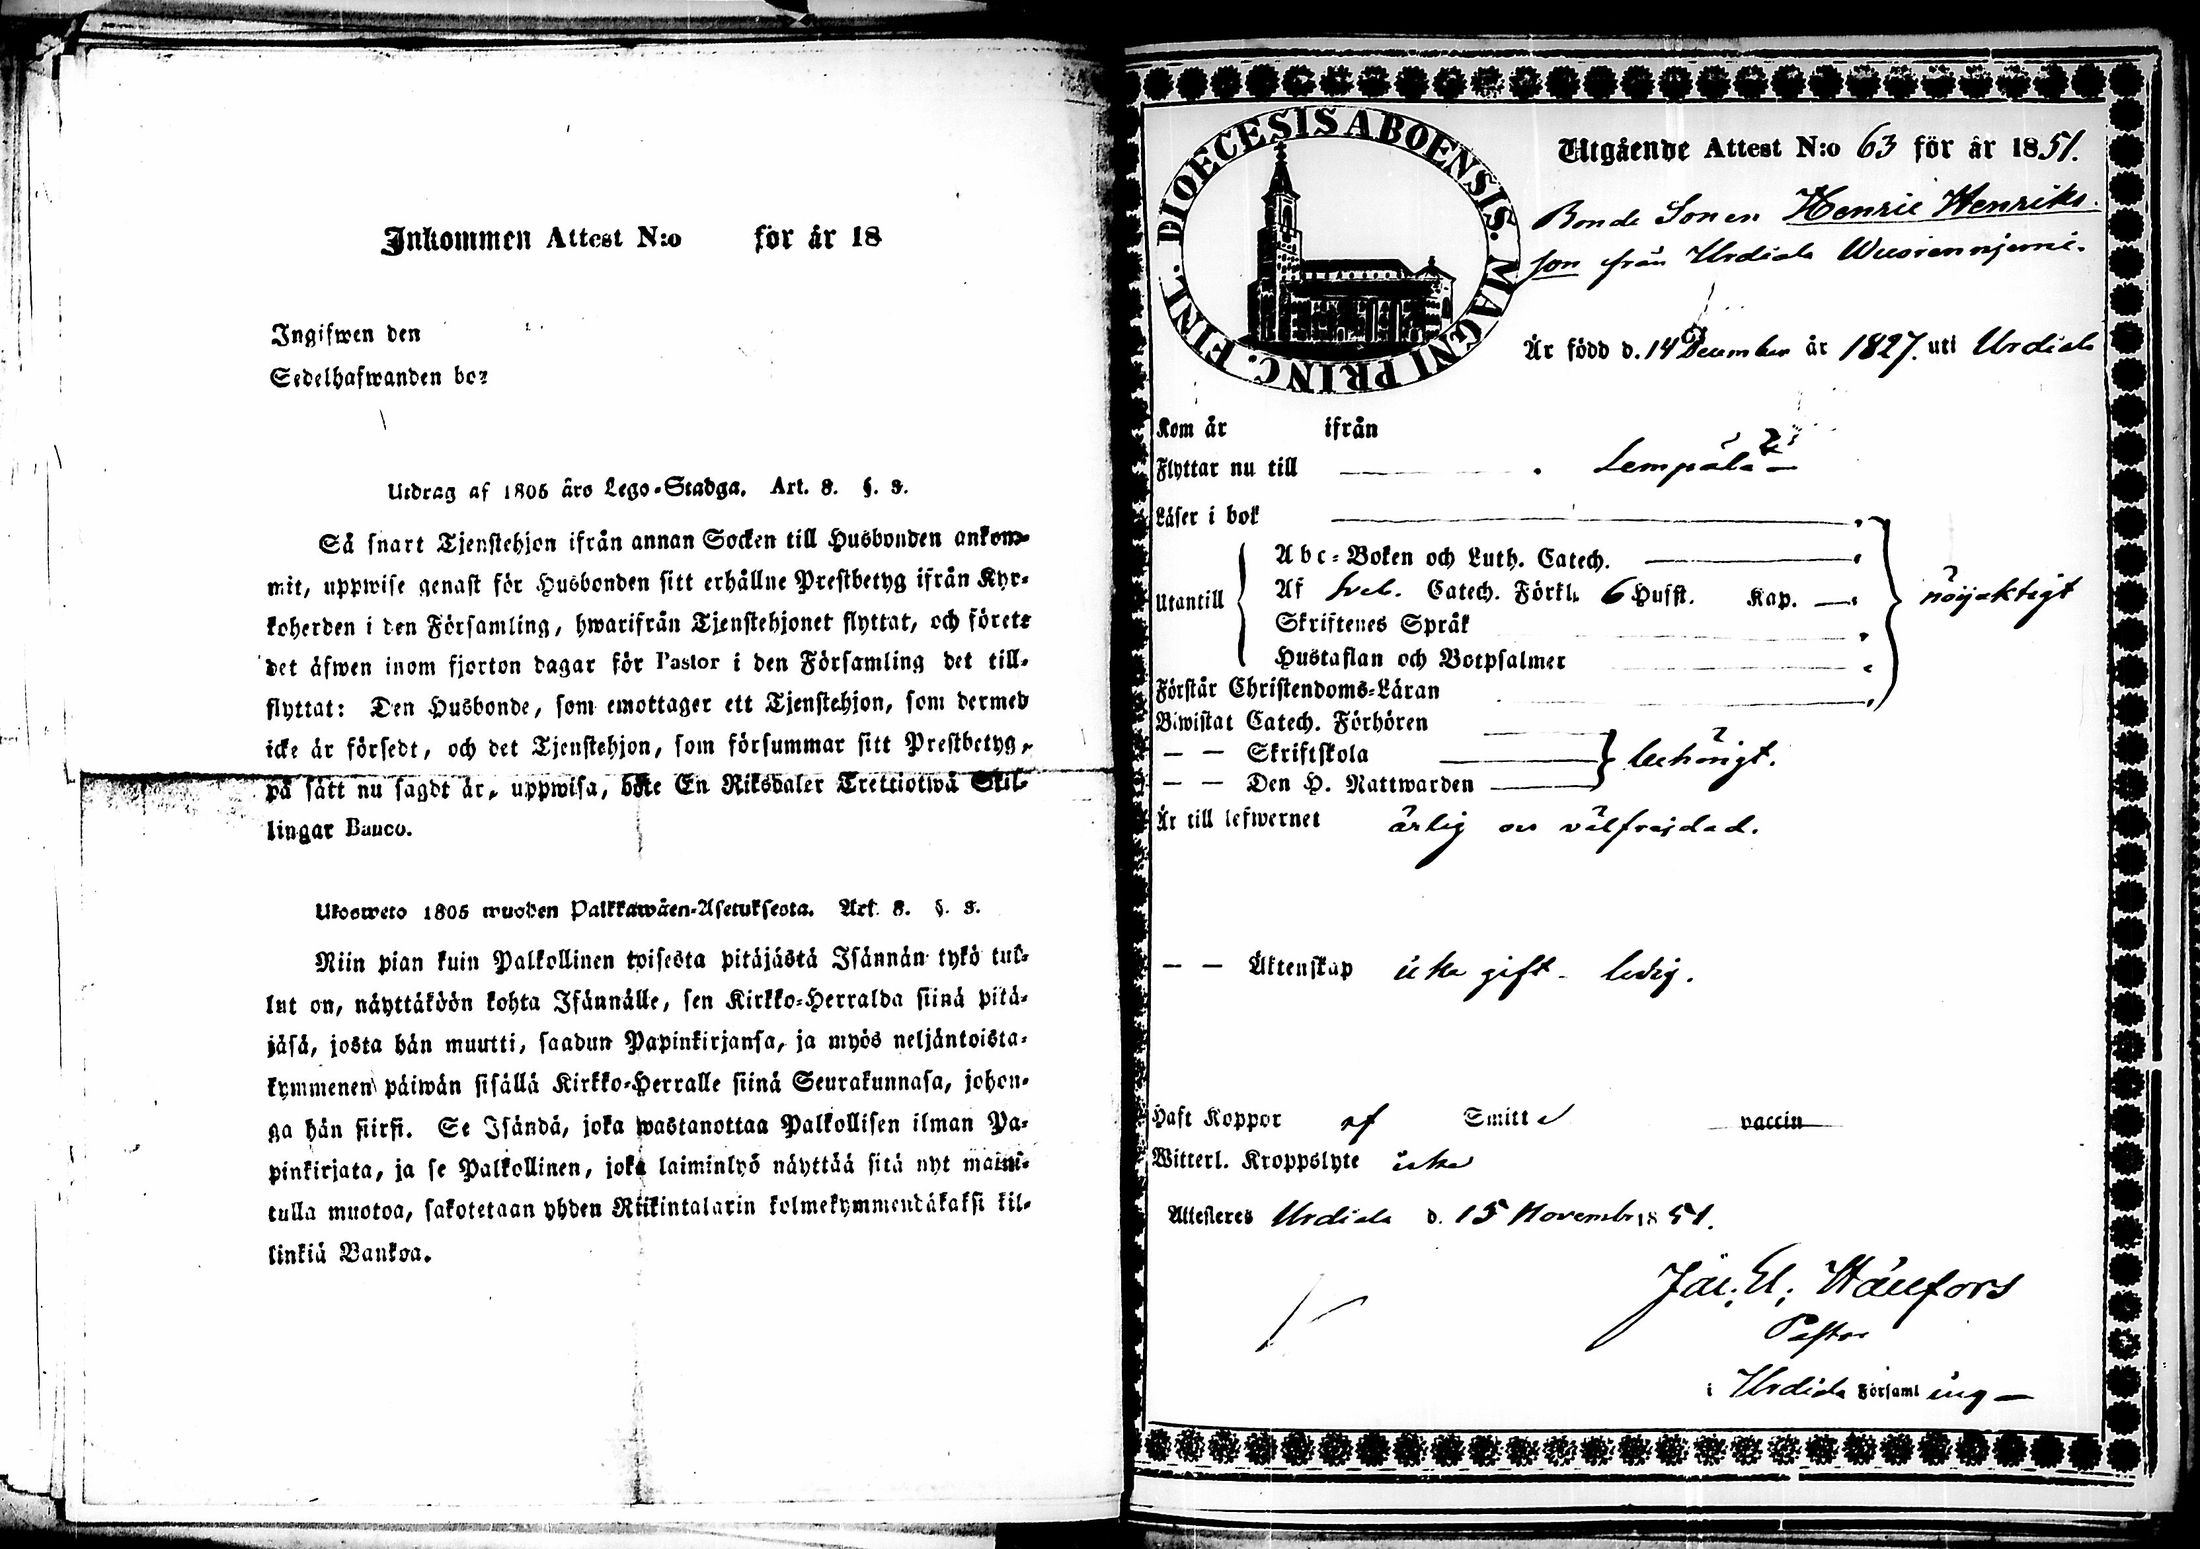 Inkommen Attest N:o för år 18
Ingifwen den
Sedelhafwanden bor
Utdrag af 1805 års Lego-Stadga. Art. 8. §. 3.
Så snart Tjenstehjon ifrån annan Socken till Husbonden ankom-
mit, uppwise genast för Husbonden sitt erhållne Prestbetyg ifrån Kyr-
koherden i den Församling, hwarifrån Tjenstehjonet flyttat, och förete
det äfwen inom fjorton dagar för Pastor i den Församling det till-
flyttat: Den Husbonde, som emottager ett Tjenstehjon, som dermed
icke är försedt, och det Tjenstehjon, som försummar sitt Prestbetyg,
på sätt nu sagdt är, uppwisa, böte En Riksdaler Trettiotwå Skil-
lingar Banco.
Ulosweto 1805 wuoden Palkkawäen-Asetuksesta. Art. 8. §. 3.
Niin pian kuin Palkollinen toisesta pitäjästä Isännän tykö tul-
lut on, näyttäköön kohta Isännälle, sen Kirkko-Herralda siinä pitä-
jäsä, josta hän muutti, saadun Papinkirjansa, ja myös neljäntoista-
kymmenen päiwän sisällä Kirkko-Herralle siinä Seurakunnasa, johon-
ga hän siirsi. Se Isändä, joka wastanottaa Palkollisen ilman Pa-
pinkirjata, ja se Palkollinen, joka laiminlyö näyttää sitä nyt maini-
tulla muotoa, sakotetaan yhden Riikintalarin kolmekymmendäkaksi kil-
linkiä Bankoa.
DIOECESIS ABOENSIS. MAGNI PRINC. FINL.
Utgående Attest N:o 63 för år 1851.
Bonde Sonen Henric Henriks-
son från Urdiala
Är född d. 14 December år 1827. uti Urdiala
Kom år ifrån
Flyttar nu till Lempälä
Läser i bok
Abc-Boken och Luth. Catech.
Utantill Af Sveb. Catech. Förkl. 6 Hufst. Kap. nöijaktigt
Skriftenes Språk
Hustaflan och Botpsalmer
Förstår Christendoms-Läran
Biwistat Catech. Förhören
— — Skriftskola behörigt.
— — Den H. Nattwarden
Är till lefwernet ärlig och välfrejdad.
— — Äktenskap icke gift - ledig.
Haft Koppor af Smitta vaccin
Witterl. Kroppslyte icke
Attesteres Urdiala d. 15 November 1851.
Pastor
i Urdiala Församling